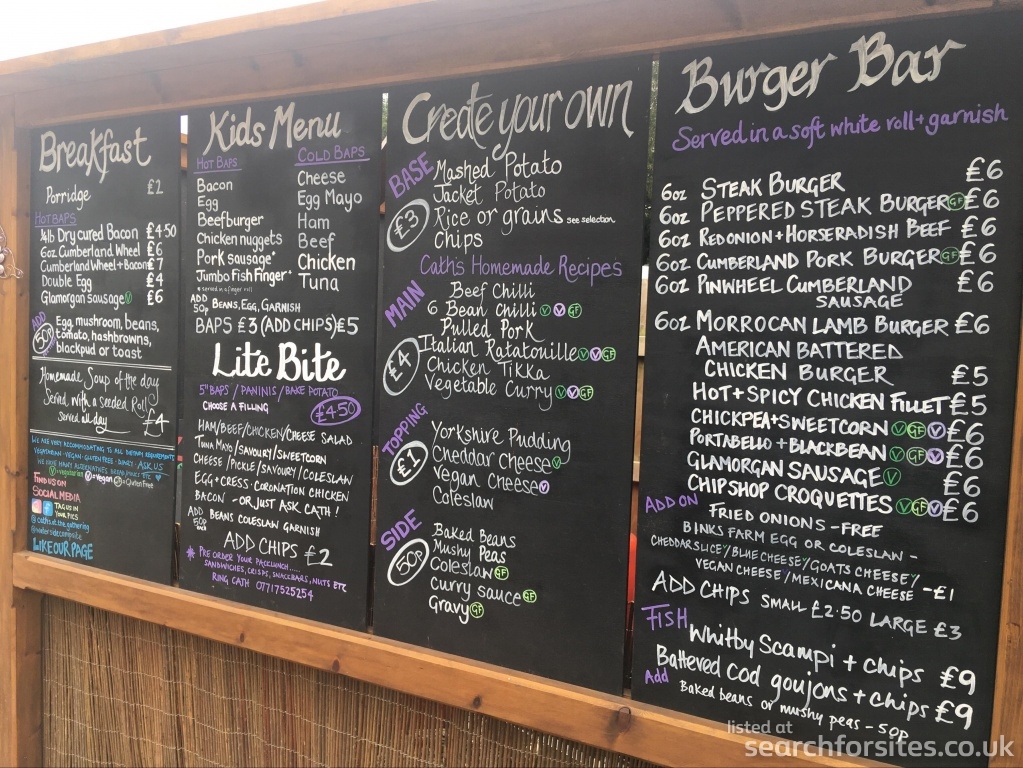 Breakfast
Porridge £2
HOT BAPS
¼lb Dry cured Bacon £4.50
6oz Cumberland Wheel £6
Cumberland Wheel + Bacon £7
Double Egg £4
Glamorgan Sausage V £6
ADD 50p
Egg, mushroom, beans,
tomato, hashbrowns,
blackpud or toast
Homemade Soup of the day
Served with a seeded Roll
Served all day £4
WE ARE VERY ACCOMMODATING TO ALL DIETARY REQUIREMENTS
VEGETARIAN - VEGAN - GLUTEN FREE - DAIRY ASK US
WE HAVE MANY ALTERNATIVES
V = vegetarian V = vegan GF = Gluten Free
FIND US ON
SOCIAL MEDIA
TAG US IN
YOUR PICS
@caths.at.the.gathering
LIKE OUR PAGE
Kids Menu
HOT BAPS
Bacon
Egg
Beefburger
Chicken nuggets
Pork sausage*
Jumbo Fish Finger*
* served in a finger roll
COLD BAPS
Cheese
Egg Mayo
Ham
Beef
Chicken
Tuna
ADD 50p BEANS, EGG, GARNISH
BAPS £3 (ADD CHIPS) £5
Lite Bite
5" BAPS / PANINIS / BAKE POTATO
CHOOSE A FILLING £4.50
HAM/BEEF/CHICKEN/CHEESE SALAD
TUNA MAYO/SAVOURY/SWEETCORN
CHEESE/PICKLE/SAVOURY/COLESLAW
EGG+CRESS - CORONATION CHICKEN
BACON - OR JUST ASK CATH!
ADD 50p BEANS COLESLAW GARNISH
ADD CHIPS £2
* PRE ORDER YOUR PACKLUNCH.....
SANDWICHES, CRISPS, SNACKBARS, NUTS ETC
RING CATH 07717525254
Create your own
BASE £3
Mashed Potato
Jacket Potato
Rice or grains see selection
Chips
Cath's Homemade Recipes
MAIN £4
Beef Chilli
6 Bean Chilli V V GF
Pulled Pork
Italian Ratatouille V V GF
Chicken Tikka
Vegetable Curry V V GF
TOPPING £1
Yorkshire Pudding
Cheddar Cheese V
Vegan Cheese V
Coleslaw
SIDE 50p
Baked Beans
Mushy Peas
Coleslaw GF
Curry sauce GF
Gravy GF
Burger Bar
Served in a soft white roll + garnish
6oz STEAK BURGER £6
6oz PEPPERED STEAK BURGER GF £6
6oz RED ONION + HORSERADISH BEEF £6
6oz CUMBERLAND PORK BURGER GF £6
6oz PINWHEEL CUMBERLAND £6
SAUSAGE
6oz MORROCAN LAMB BURGER £6
AMERICAN BATTERED
CHICKEN BURGER £5
HOT + SPICY CHICKEN FILLET £5
CHICKPEA + SWEETCORN V GF V £6
PORTABELLO + BLACKBEAN V GF V £6
GLAMORGAN SAUSAGE V £6
CHIPSHOP CROQUETTES V GF V £6
ADD ON
FRIED ONIONS - FREE
BINKS FARM EGG OR COLESLAW -
CHEDDAR SLICE/BLUE CHEESE/GOATS CHEESE/
VEGAN CHEESE/MEXICANA CHEESE - £1
ADD CHIPS SMALL £2.50 LARGE £3
FISH
Whitby Scampi + chips £9
Battered Cod goujons + chips £9
Add
Baked beans or mushy peas - 50p
listed at
searchforsites.co.uk